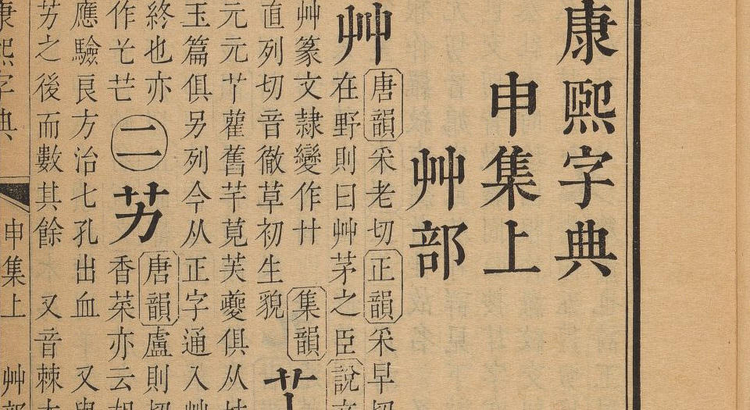 康熙字典
申集上
艸部
艸
唐韻采老切正韻采早切
在野則曰艸茅之臣說文
艸篆文隷變作廾 集韻
直列切音徹草初生貌
雚舊芊莧芙夔俱从
玉篇俱另列今从正字通入艸
終也亦
作芒
二 艻
唐韻盧則切
香菜亦云胡
應驗良方治七孔出血 又與
芳之後而數其餘 又音棘
康熙字典 申集上 艸部